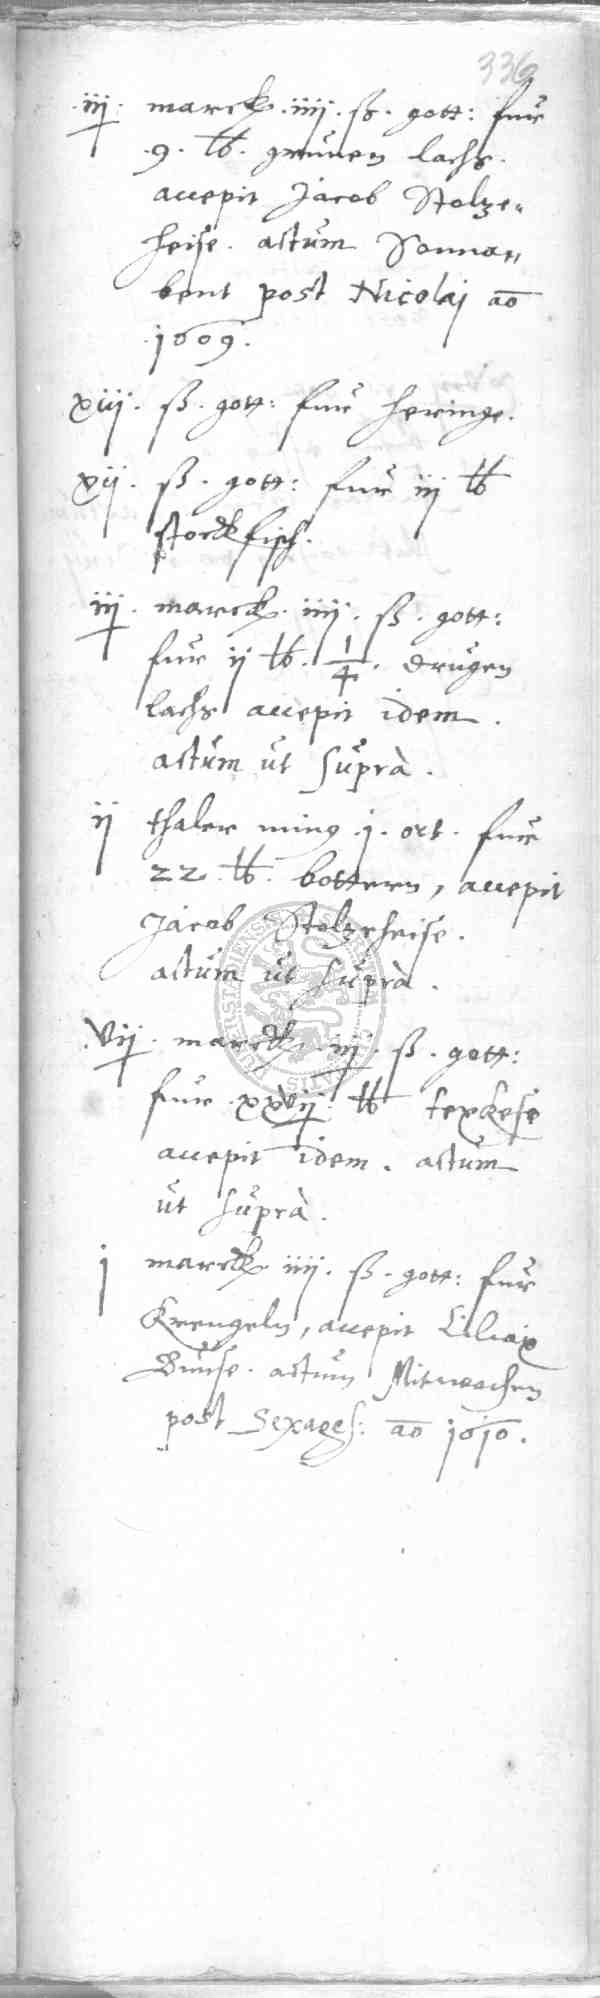 336
.iij. marck. iiij. ß. gott: fur
.9. lb. grunen lachs.
accepit Jacob Stolze„
heise. actum Sonna„
bent post Nicolaj ao
.1609.
xiij. ß. gott: fur heringe.
xij. ß. gott: fur iij lb
stockfisch.
iij. marck. iiij. ß. gott:
fur ij lb. 1/4. drugen
lachs accepit idem.
actum ut suprà.
ij thaler ming .j. ort. fur
22. lb. bottern, accepit
Jacob Stolzeheise.
actum ut suprà.
.vij. marck. iij. ß. gott:
fur .xxvij. lb texkese
accepit idem. actum
ut suprà.
j marck. iiij. ß. gott: fur
Krengeln, accepit Liliax
Buuse. actum Mitwochen
post Sexages: ao 1610.